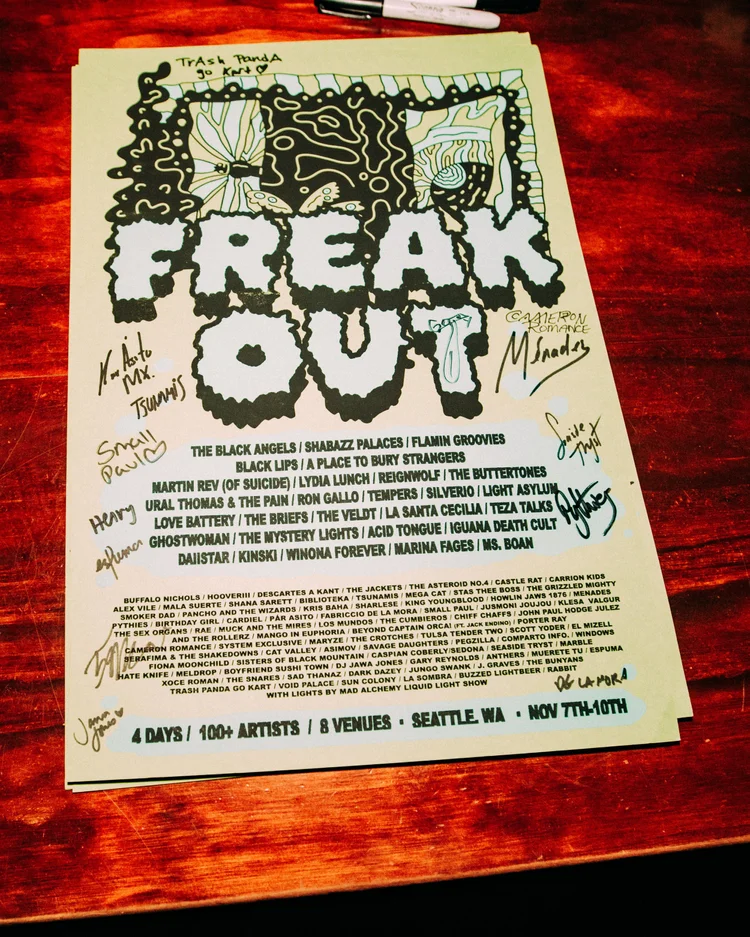 TrAsh PandA
go Kart
FREAK
OUT
CAMERON
ROMANCE
Ménades
Mx.
TSUNAMIS
Small
Paul
Henry
espuma
THE BLACK ANGELS / SHABAZZ PALACES / FLAMIN GROOVIES
BLACK LIPS / A PLACE TO BURY STRANGERS
MARTIN REV (OF SUICIDE) / LYDIA LUNCH / REIGNWOLF / THE BUTTERTONES
URAL THOMAS & THE PAIN / RON GALLO / TEMPERS / SILVERIO / LIGHT ASYLUM
LOVE BATTERY / THE BRIEFS / THE VELDT / LA SANTA CECILIA / TEZA TALKS
GHOSTWOMAN / THE MYSTERY LIGHTS / ACID TONGUE / IGUANA DEATH CULT
DAIISTAR / KINSKI / WINONA FOREVER / MARINA FAGES / MS. BOAN
BUFFALO NICHOLS / HOOVERIII / DESCARTES A KANT / THE JACKETS / THE ASTEROID NO.4 / CASTLE RAT / CARRION KIDS
ALEX VILE / MALA SUERTE / SHANA SARETT / BIBLIOTEKA / TSUNAMIS / MEGA CAT / STAS THEE BOSS / THE GRIZZLED MIGHTY
SMOKER DAD / PANCHO AND THE WIZARDS / KRIS BAHA / SHARLESE / KING YOUNGBLOOD / HOWLIN JAWS 1876 / MENADES
PYTHIES / BIRTHDAY GIRL / CARDIEL / PÁR ASITO / FABRICCIO DE LA MORA / SMALL PAUL / JUSMONI JOUJOU / KLESA VALGUR
THE SEX ORGANS / RAE / MUCK AND THE MIRES / LOS MUNDOS / THE CUMBIEROS / CHIFF CHAFFS / JOHN PAUL HODGE JULEZ
AND THE ROLLERZ / MANGO IN EUPHORIA / BEYOND CAPTAIN ORCA (FT. JACK ENDINO) / PORTER RAY
CAMERON ROMANCE / SYSTEM EXCLUSIVE / MARYZE / THE CROTCHES / TULSA TENDER TWO / SCOTT YODER / EL MIZELL
SERAFIMA & THE SHAKEDOWNS / CAT VALLEY / ASIMOV / SAVAGE DAUGHTERS / PEGZILLA / COMPARTO INFO. / WINDOWS
FIONA MOONCHILD / SISTERS OF BLACK MOUNTAIN / CASPIAN COBERLY/SEDONA / SEASIDE TRYST / MARBLE
HATE KNIFE / MELDROP / BOYFRIEND SUSHI TOWN / DJ JAWA JONES / GARY REYNOLDS / ANTHERS / MUERETE TU / ESPUMA
XOCE ROMAN / THE SNARES / SAD THANAZ / DARK DAZEY / JUNGO SWANK / J. GRAVES / THE BUNYANS
TRASH PANDA GO KART / VOID PALACE / SUN COLONY / LA SOMBRA / BUZZED LIGHTBEER / RABBIT
WITH LIGHTS BY MAD ALCHEMY LIQUID LIGHT SHOW
DE LA MORA
4 DAYS / 100+ ARTISTS / 8 VENUES · SEATTLE, WA · NOV 7TH-10TH